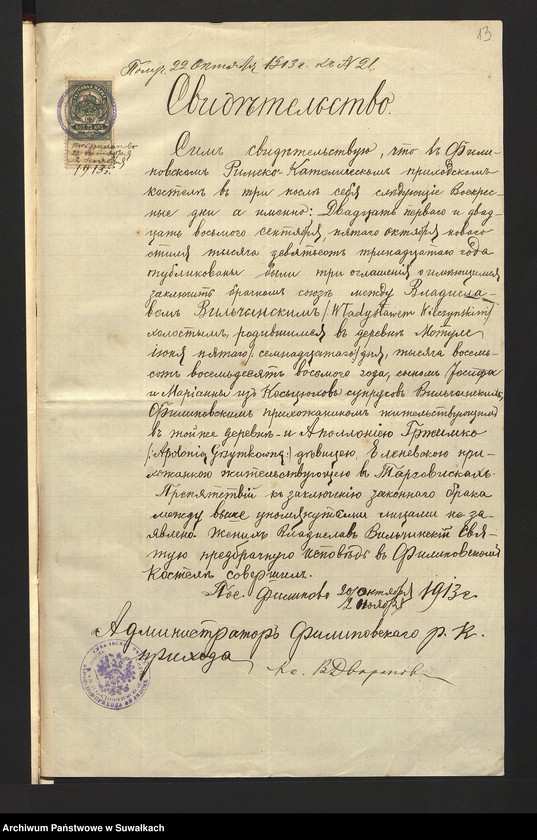 13
Получ. 22 Октября 1913 г. къ № 21.
Свидѣтельство.
Симъ свидѣтельствую, что въ Фили-
повскомъ Римско-Католическомъ приходскомъ
костелѣ въ три послѣ себя слѣдующіе Воскрес-
ные дни а именно: Двадцать перваго и двад-
цать восьмого сентября, пятаго октября новаго
стиля тысяча девятьсотъ тринадцатаго года
опубликованы были три оглашенія о имѣющемся
заключить брачномъ союзѣ между Владисла-
вомъ Вильчинскимъ /Władysławem Wilczyńskim/
холостымъ, родившимся въ деревнѣ Мотуле
іюня пятаго /семнадцатаго/ дня, тысяча восемь-
сотъ восемьдесятъ восьмого года, сыномъ Іосифа
и Маріанны изъ супруговъ Вильчинскихъ,
Филиповскимъ прихожаниномъ жительствующимъ
въ той же деревнѣ - и Аполлоніею Гржимко
/:Apolonią Grzymkówną:/ дѣвицею, Еленевскою при-
хожанкою жительствующею въ Тарговискахъ.
Препятствій къ заключенію законнаго брака
между выше упомянутыми лицами не за-
явлено. Женихъ Владиславъ Вильчинскій Свя-
тую предбрачную Исповѣдь въ Филиповскомъ
Костелѣ совершилъ.
Пос. Филипово 20 Октября / 2 Ноября 1913 г.
Администраторъ Филиповскаго р. К.
прихода
Кс. В
Archiwum Państwowe w Suwałkach